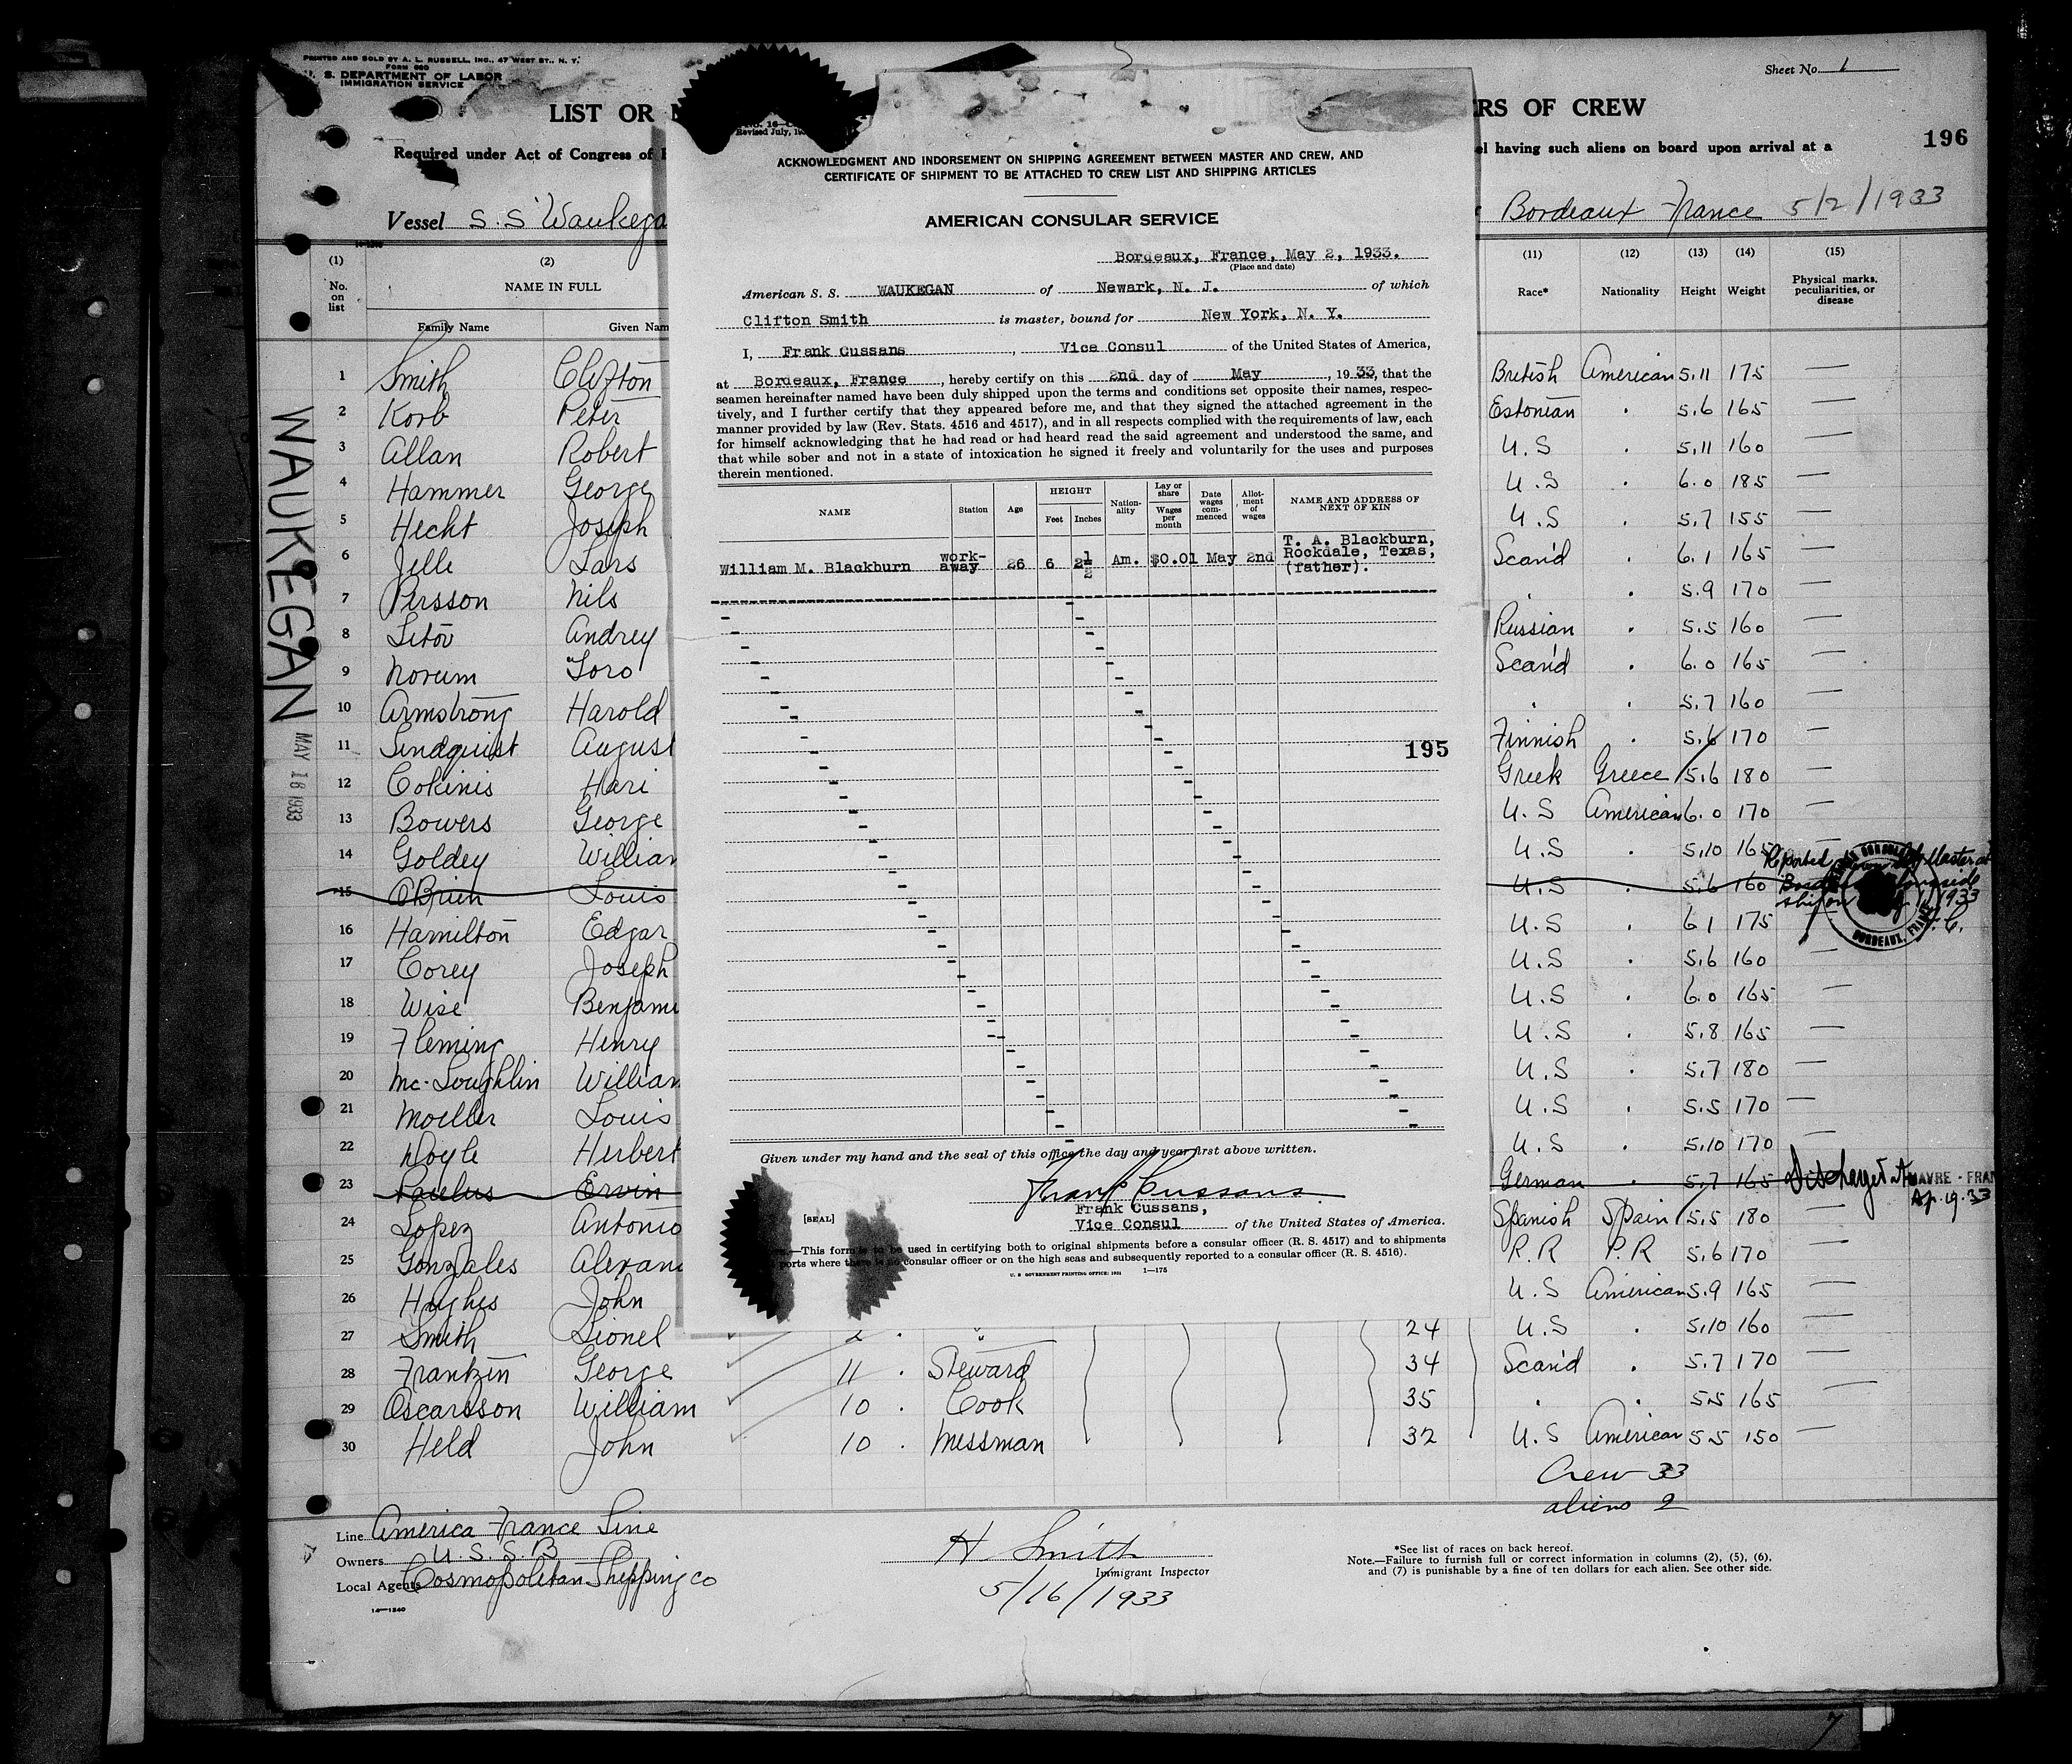 PRINTED AND SOLD BY A. L. RUSSELL, INC., 47 WEST ST., N. Y.
FORM 680
U. S. DEPARTMENT OF LABOR
IMMIGRATION SERVICE
Sheet No. 1
LIST OR
RS OF CREW
196
Required under Act of Congress of
el having such aliens on board upon arrival at a
Vessel S.S Waukega
Bordeaux France 5/2/1933
(1) (2) (11) (12) (13) (14) (15)
No. on list NAME IN FULL Race* Nationality Height Weight Physical marks, peculiarities, or disease
Family Name Given Nam
1 Smith Clifton British American 5.11 175 —
2 Korb Peter Estonian . 5.6 165 —
3 Allan Robert U.S . 5.11 160 —
4 Hammer George U.S . 6.0 185 —
5 Hecht Joseph U.S . 5.7 155 —
6 Jelle Lars Scand . 6.1 165 —
7 Persson Nils . . 5.9 170 —
8 Litov Andrey Russian . 5.5 160 —
9 Norum Toro Scand . 6.0 165 —
10 Armstrong Harold . . 5.7 160 —
11 Lindquist August Finnish . 5.6 170 —
12 Cokinis Hari Greek Greece 5.6 180 —
13 Bowers George U.S American 6.0 170 —
14 Goldey William U.S . 5.10 165 —
15 OBrien Louis U.S . 5.6 160
Reported Master at
ship on 1933
BORDEAUX, FRANCE
16 Hamilton Edgar U.S . 6 1 175
17 Corey Joseph U.S . 5.6 160 —
18 Wise Benjami U.S . 6.0 165 —
19 Fleming Henry U.S . 5.8 165 —
20 Mc.Loughlin William U.S . 5.7 180 —
21 Moeller Louis U.S . 5.5 170 —
22 Doyle Herbert U.S . 5.10 170 —
23 Paulus Ervin German . 5.7 165 Discharged At HAVRE - FRAN
Ap. 19. 33
24 Lopez Antonio Spanish Spain 5.5 180 —
25 Gonzales Alexan P.R P.R 5.6 170 —
26 Hughes John U.S American 5.9 165 —
27 Smith Lionel 2 . " 24 U.S . 5.10 160 —
28 Frantzen George 11 . Steward 34 Scand . 5.7 170 —
29 Oscarsson William 10 . Cook 35 . . 5.5 165 —
30 Held John 10 . Messman 32 U.S American 5.5 150 —
Crew 33
aliens 2
Line America France Line
Owners U.S.S.B
Local Agents Cosmopolitan Shipping co
14—1240
H Smith
Immigrant Inspector
5/16/1933
*See list of races on back hereof.
Note.—Failure to furnish full or correct information in columns (2), (5), (6),
and (7) is punishable by a fine of ten dollars for each alien. See other side.
WAUKEGAN
MAY 16 1933
Revised July, 19
ACKNOWLEDGMENT AND INDORSEMENT ON SHIPPING AGREEMENT BETWEEN MASTER AND CREW, AND
CERTIFICATE OF SHIPMENT TO BE ATTACHED TO CREW LIST AND SHIPPING ARTICLES
AMERICAN CONSULAR SERVICE
Bordeaux, France, May 2, 1933.
(Place and date)
American S. S. WAUKEGAN of Newark, N. J. of which
Clifton Smith is master, bound for New York, N. Y.
I, Frank Cussans, Vice Consul of the United States of America,
at Bordeaux, France, hereby certify on this 2nd day of May, 1933, that the
seamen hereinafter named have been duly shipped upon the terms and conditions set opposite their names, respec-
tively, and I further certify that they appeared before me, and that they signed the attached agreement in the
manner provided by law (Rev. Stats. 4516 and 4517), and in all respects complied with the requirements of law, each
for himself acknowledging that he had read or had heard read the said agreement and understood the same, and
that while sober and not in a state of intoxication he signed it freely and voluntarily for the uses and purposes
therein mentioned.
NAME Station Age HEIGHT Feet Inches Nation-ality Lay or share Wages per month Date wages com-menced Allot-ment of wages NAME AND ADDRESS OF NEXT OF KIN
William M. Blackburn work-away 26 6 2½ Am. $0.01 May 2nd T. A. Blackburn, Rockdale, Texas, (father).
195
Given under my hand and the seal of this office the day and year first above written.
Frank Cussans
Frank Cussans,
[SEAL] Vice Consul of the United States of America.
—This form is to be used in certifying both to original shipments before a consular officer (R. S. 4517) and to shipments
ports where there is no consular officer or on the high seas and subsequently reported to a consular officer (R. S. 4516).
U. S GOVERNMENT PRINTING OFFICE: 1931 1—175
7